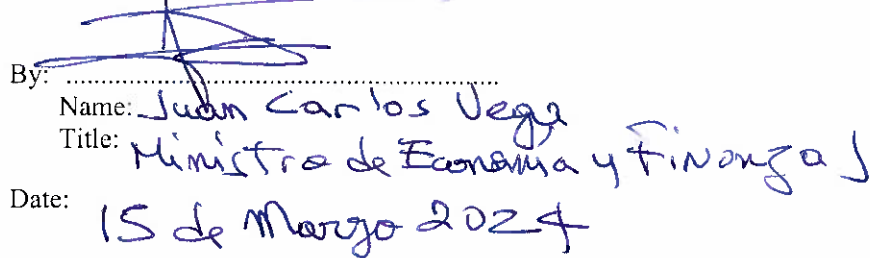 By: ............................................................
Name: Juan Carlos Vega
Title: Ministro de Economía y Finanzas
Date: 15 de Marzo 2024